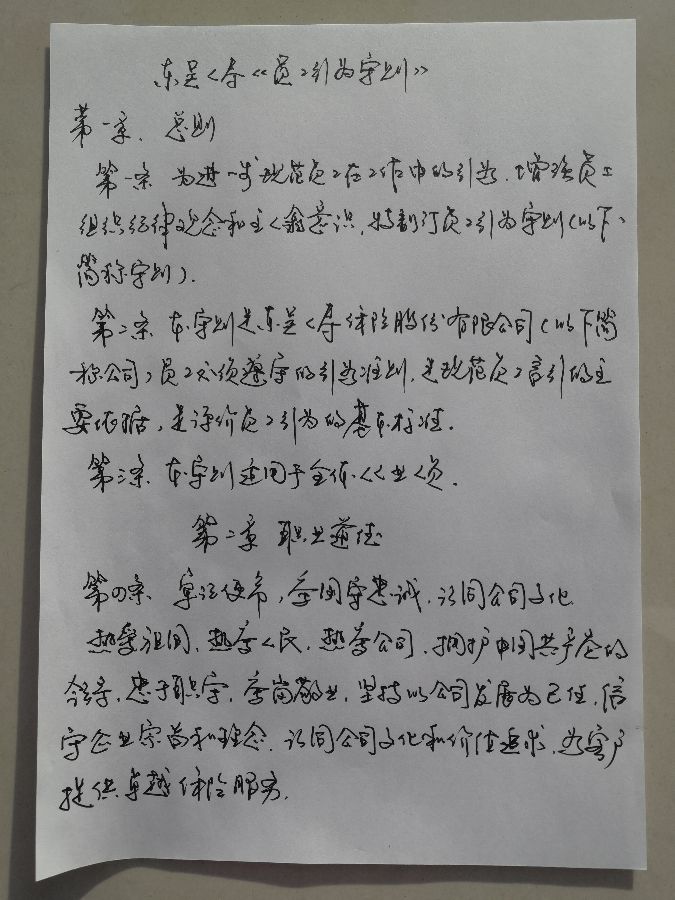 东吴人寿《员工行为守则》
第一章、总则
第一条 为进一步规范员工在工作中的行为、增强员工
组织纪律观念和主人翁意识,特制订员工行为守则(以下
简称守则).
第二条 本守则是东吴人寿保险股份有限公司(以下简
称公司)员工必须遵守的行为准则,是规范员工言行的主
要依据,是评价员工行为的基本标准.
第三条 本守则适用于全体人业人员.
第二章 职业道德
第四条 牢记使命,爱国忠诚,认同公司文化
热爱祖国,热爱人民,热爱公司,拥护中国共产党的
领导,忠于职守,爱岗敬业,坚持以公司发展为己任,信
守企业宗旨和理念,认同公司文化和价值追求,为客户
提供卓越保险服务.